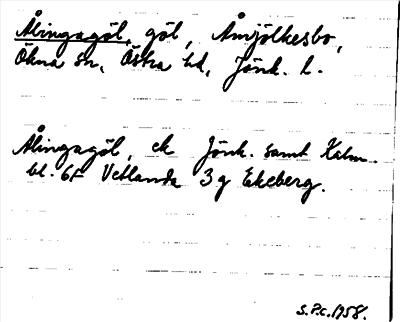 Ålingagöl, göl, Åmjölkesbo,
Ökna sn, Östra hd, Jönk. l.
Ålingagöl, ek Jönk. samt Kalm.
bl. 6F Vetlanda 3g Ekeberg.
S.P.c.1958.